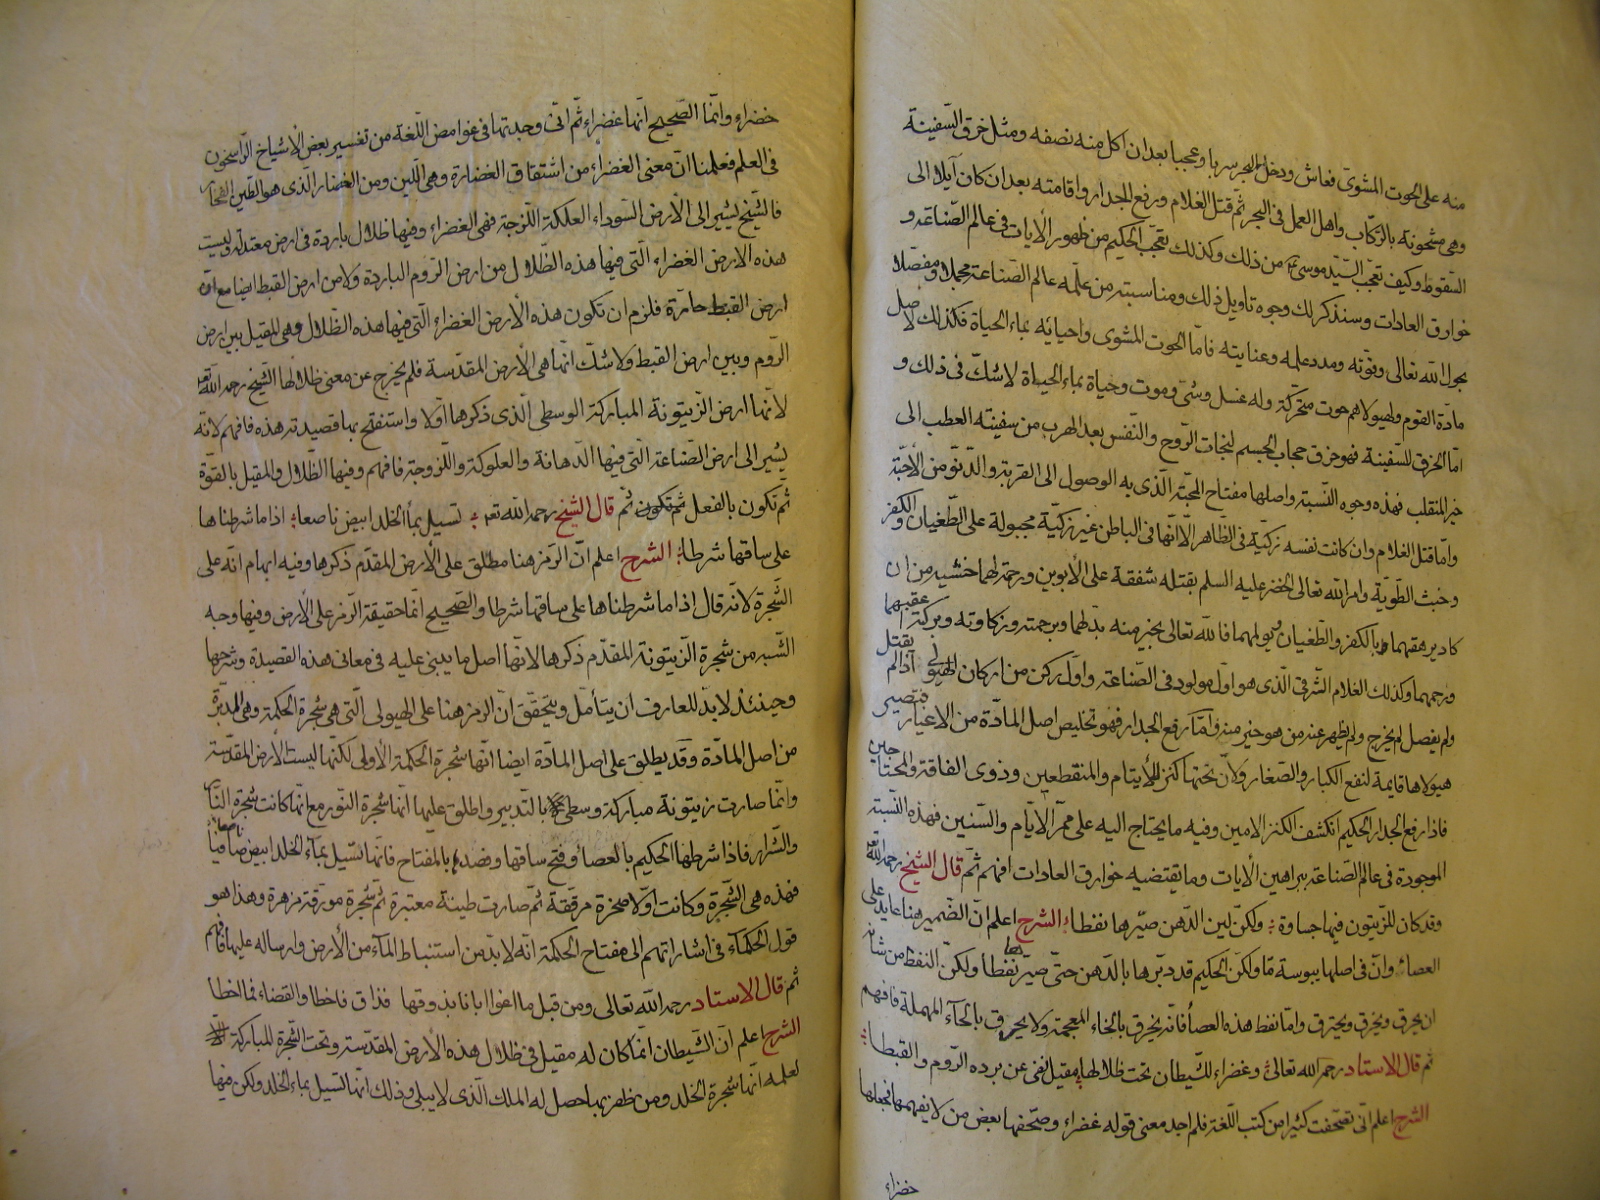 منه على الحوت المشوى فعاش ودخل البحر سربا وعجبا بعد ان اكل منه نصفه ومثل خرق السفينة
وهى مشحونة بالركاب واهل العمل فى البحر ثم قتل الغلام ورفع الجدار واقامته بعد ان كان آيلا الى
السقوط وكيف تعجب السيد موسى من ذلك وكذلك تعجب الحكيم من ظهور الآيات فى عالم الصناعة و
خوارق العادات وسنذكر لك وجوه تاويل ذلك ومناسبته من علمه عالم الصناعة مجملا ومفصلا
بحول الله تعالى وقوته ومدد علمه وعنايته فاما الحوت المشوى واحيائه بماء الحياة فكذلك لاصل
مادة القوم ولهيولاهم حوت متحركة وله غسل وشى وموت وحياة بماء الحياة لا شك فى ذلك و
اما الخرق للسفينة فهو خرق حجاب الجسم لنجات الروح والنفس بعد الهرب من سفينة العطب الى
خير المنقلب فهذه وجوه النسبة واصلها مفتاح المحبة الذى به الوصول الى القربة والدنو من الاحبة
واما قتل الغلام وان كانت نفسه زكية فى الظاهر الا انها فى الباطن غير زكية مجبولة على الطغيان والكفر
وخبث الطوية وامر الله تعالى الخضر عليه السلم بقتله شفقة على الأبوين ورحمة لهما خشية من ان
كاد يرهقهما بالكفر والطغيان فالله تعالى بخير منه بدلهما وبرحمته وزكاوته وبركة عقبهما
ورحمهما وكذلك الغلام الشرقى الذى هو اول مولود فى الصناعة واول ركن من اركان الهيولى يقتل اذا لم
ولم يفصل لم يخرج ولم يظهر عنه من هو خير منه واما رفع الجدار فهو تخليص اصل المادة من الاغيار فتصير
هيولاها قايمة لنفع الكبار والصغار ولان تحتها كنز للأيتام والمنقطعين وذوى الفاقة والمحتاجين
فاذا رفع الجدار الحكيم انكشف الكنز الامين وفيه ما يحتاج اليه على ممر الأيام والسنين فهذه النسبة
الموجودة فى عالم الصناعة ببراهين الآيات وما يقتضيه خوارق العادات افهم ثم قال الشيخ رحمه الله
وقد كان للزيتون فيها جساوة ولكن لين الدهن صيرها نفطا الشرح اعلم ان الضمير هنا عايد على
العصاء وان فى اصلها يبوسة ما ولكن الحكيم قد دبرها بالدهن حتى صيرها نفطا ولكن النفط من شانه
ان يحرق ويخرق ويحترق واما نفط هذه العصا فانه يخرق بالخاء المعجمة ولا يحرق بالحاء المهملة فافهم
ثم قال الاستاد رحمه الله تعالى وغضراء للشيطان تحت ظلالها مقيل نفى عن برده الروم والقبطا
الشرح اعلم انى تصحفت كثيرا من كتب اللغة فلم اجد معنى قوله غضراء وصحفها بعض من لا يفهمها فجعلها
خضراء
خضراء وانما الصحيح انها غضراء ثم انى وجدتها فى غوامض اللغة من تفسير بعض الأشياخ الراسخون
فى العلم فعلمنا ان معنى الغضراء من اشتقاق الغضارة وهى اللين ومن الغضار الذى هو الطين الفخار
فالشيخ يشير الى الأرض السوداء العلكة اللزوجة فهى الغضراء وفيها ظلال باردة فى ارض معتدلة وليست
هذه الأرض الغضراء التى فيها هذه الظلال من ارض الروم الباردة ولا من ارض القبط ايضا مع ان
ارض القبط حارة فلزم ان تكون هذه الأرض الغضراء التى فيها هذه الظلال وهى المقيل بين ارض
الروم وبين ارض القبط ولا شك انما هى الأرض المقدسة فلم يخرج عن معنى ظلالها الشيخ رحمه الله
لأنها ارض الزيتونة المباركة الوسطى الذى ذكرها اولا واستفتح بها قصيدته هذه فافهم لانه
يشير الى ارض الصناعة التى فيها الدهانة والعلوكة واللزوجة فافهم وفيها الظلال والمقيل بالقوة
ثم تكون بالفعل ثم تكون ثم قال الشيخ رحمه الله تع تسيل بماء الخلد ابيض ناصعا اذا ما شرطناها
على ساقها شرطا الشرح اعلم ان الرمز هنا مطلق على الأرض المقدم ذكرها وفيه ايهام انه على
الشجرة لانه قال اذا ما شرطناها على ساقها شرطا والصحيح انما حقيقة الرمز على الأرض وفيها وجه
الشبه من شجرة الزيتونة المقدم ذكرها لانها اصل ما يبنى عليه فى معانى هذه القصيدة وشرحها
وحينئذ لا بد للعارف ان يتأمل ويتحقق ان الرمز هنا على الهيولى التى هى شجرة الحكمة وهى المدبرة
من اصل المادة وقد يطلق على اصل المادة ايضا انها شجرة الحكمة الاولى لكنها ليست الأرض المقدسة
وانما صارت زيتونة مباركة وسطى بالتدبير واطلق عليها انها شجرة النور مع انها كانت شجرة النار
والشرار فاذا شرطها الحكيم بالعصا وفتح ساقها وفصدها بالمفتاح فانها تسيل بماء الخلد ابيض ناصعا صافيا
فهذه هى الشجرة وكانت اولا صخرة مرققة ثم صارت طينة معتبرة ثم شجرة مورقة مزهرة وهذا هو
قول الحكماء فى اشاراتهم الى مفتاح الحكمة انه لا بد من استنباط الماء من الأرض وارساله عليها فافهم
ثم قال الاستاد رحمه الله تعالى ومن قبل ما اغوا ابانا بذوقها فذاق فاخطا والقضاء فما اخطا
الشرح اعلم ان الشيطان انما كان له مقيل فى ظلال هذه الأرض المقدسة وتحت الشجرة المباركة
لعلمه انها شجرة الخلد ومن ظفر بها حصل له الملك الذى لا يبلى وذلك انها تسيل بماء الخلد ولكن فيها